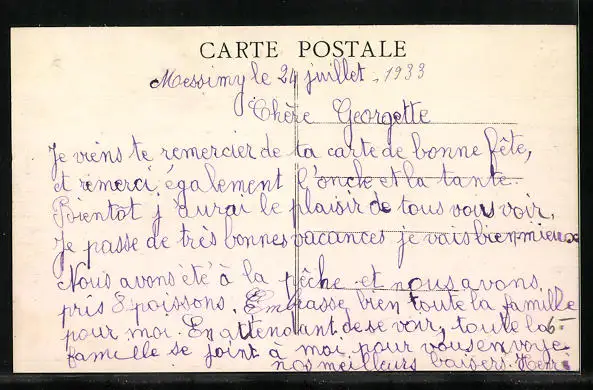 CARTE POSTALE
Messimy le 24 juillet 1933
Chère Georgette
Je viens te remercier de ta carte de bonne fête,
et remerci également l'oncle et la tante.
Bientot j'aurai le plaisir de tous vous voir.
Je passe de très bonnes vacances je vais bien mieux
Nous avons été à la pêche et nous avons
pris 8 poissons. Embrasse bien toute la famille
pour moi. En attendant de se voir, toute la
famille se joint à moi pour vous envoye
nos meilleurs baisers. Henri